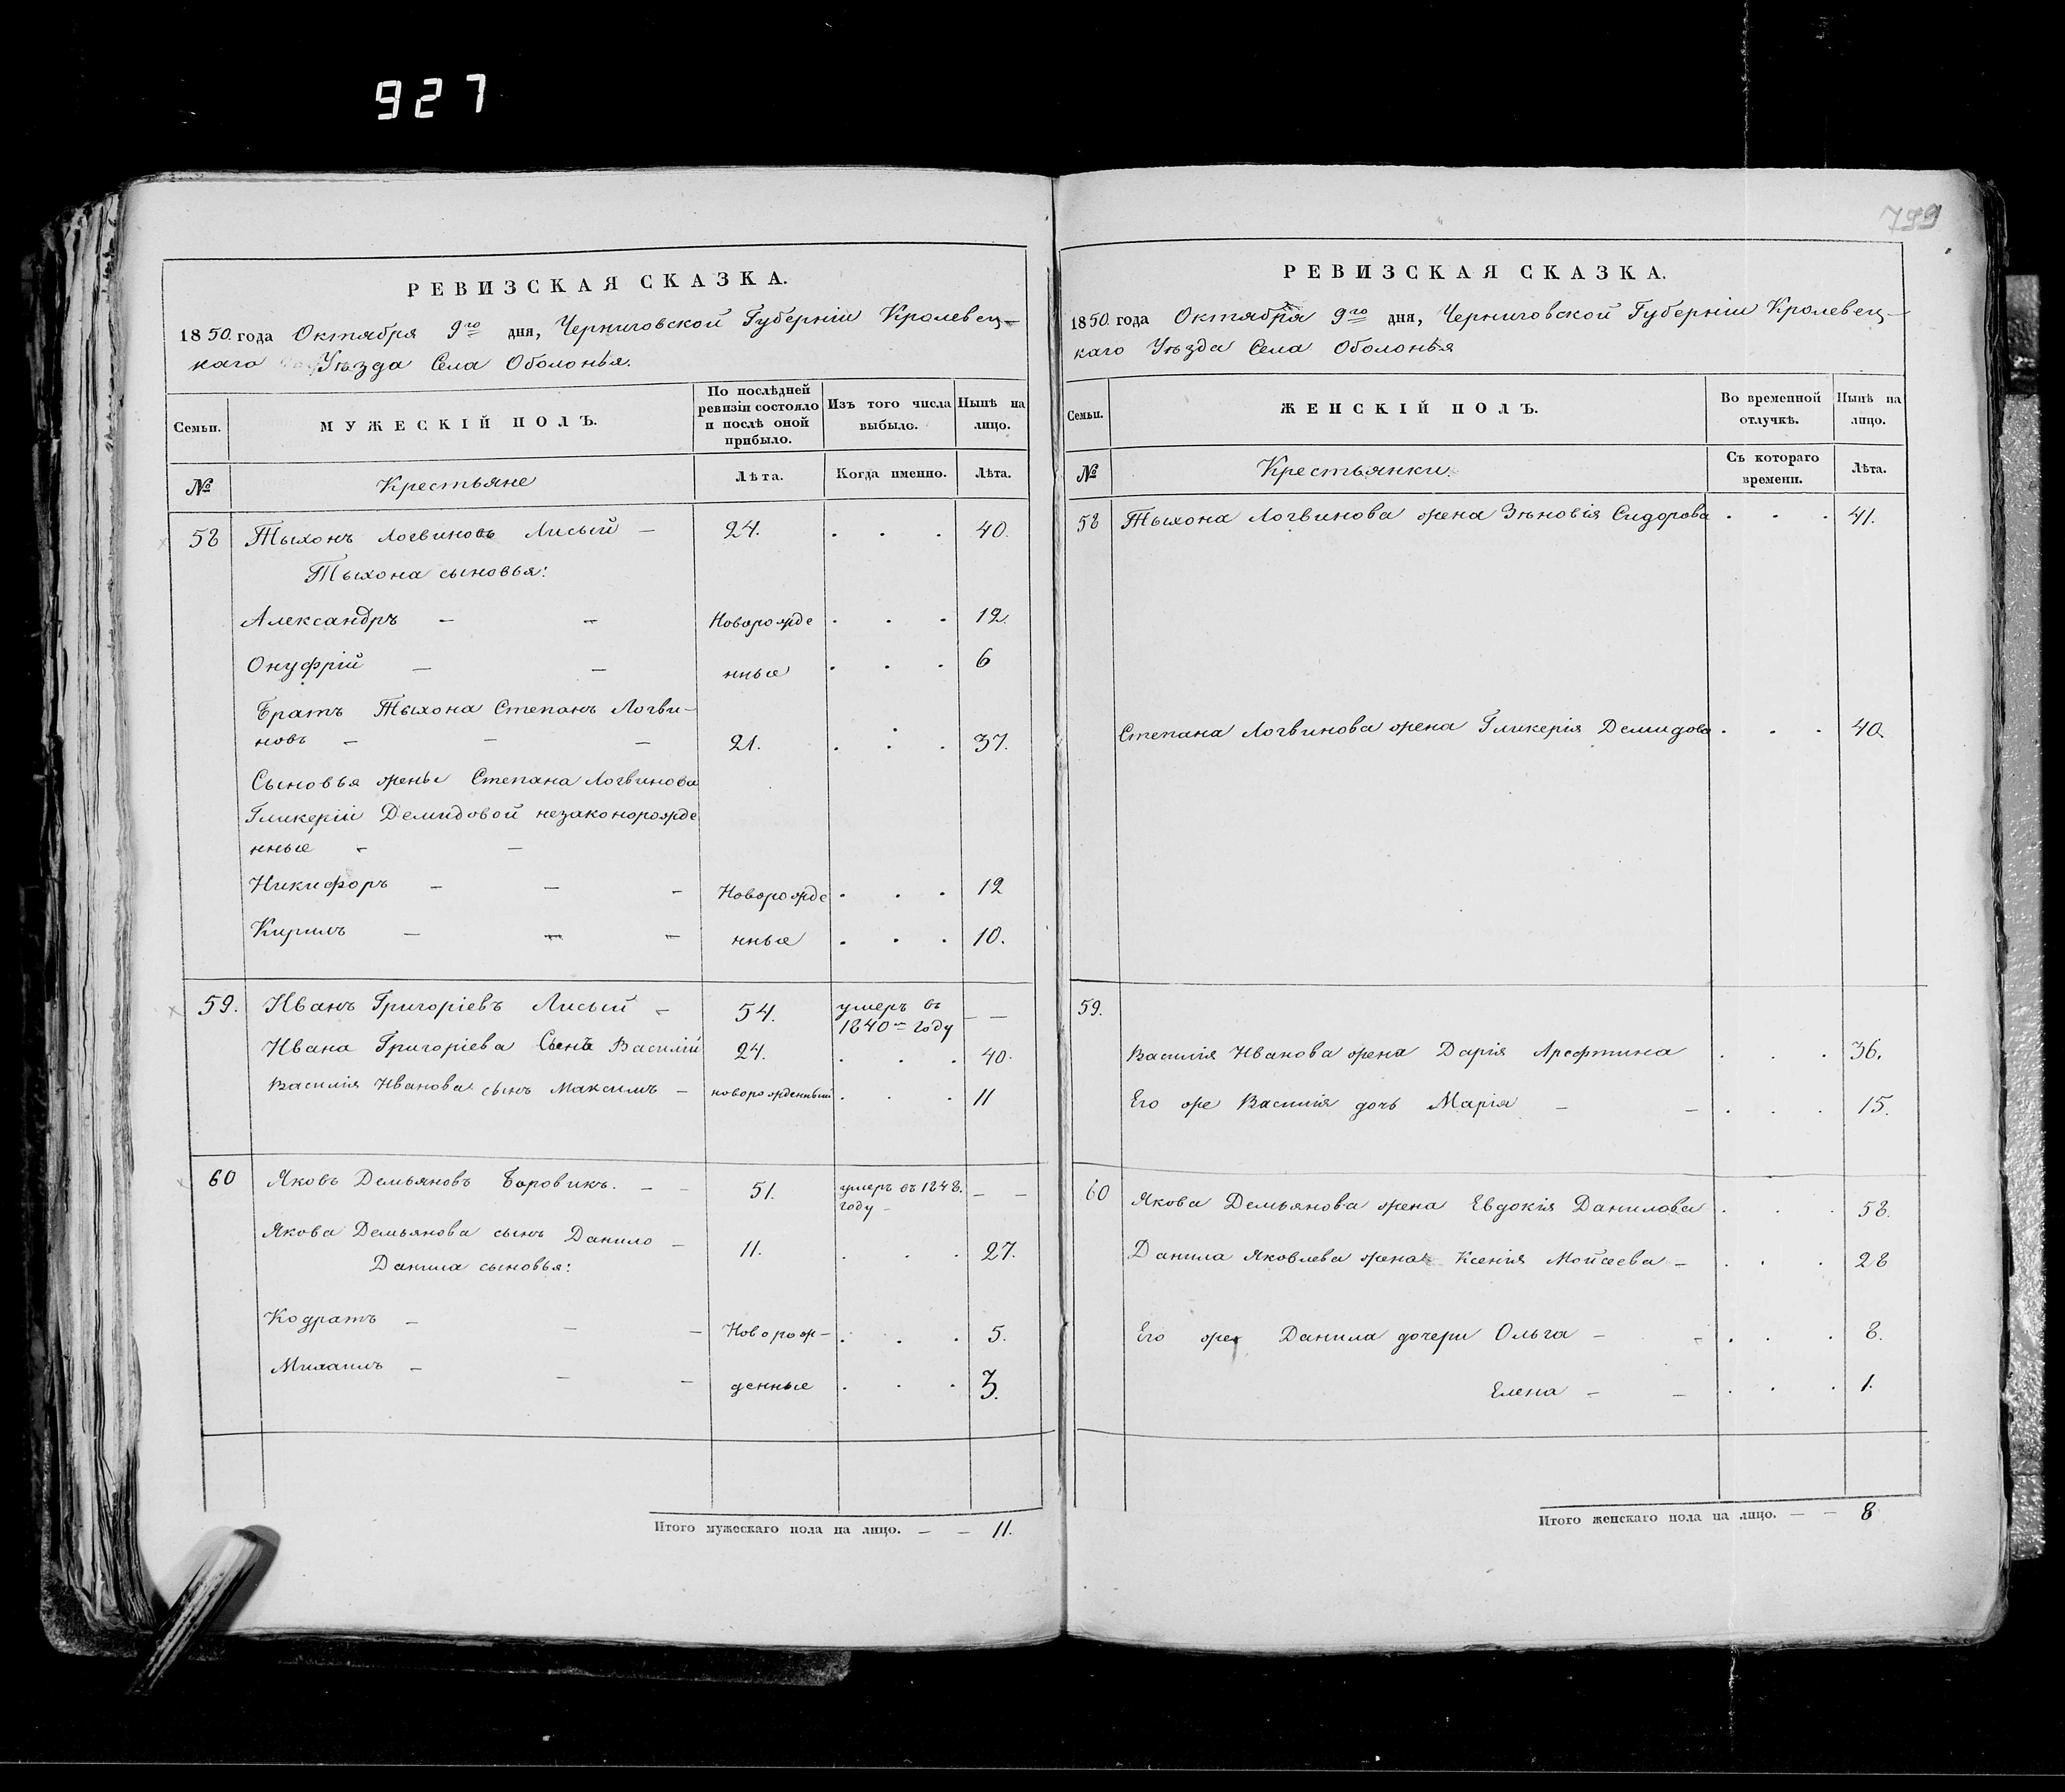 927
799
РЕВИЗСКАЯ СКАЗКА.
1850. года Октября 9го дня, Черниговской Губерніи Кролевец-
каго Уѣзда Села Оболонья.
Семьи.
МУЖЕСКІЙ ПОЛЪ.
По послѣдней ревизіи состояло и послѣ оной прибыло.
Изъ того числа выбыло.
Нынѣ на лицо.
№
Крестьяне
Лѣта.
Когда именно.
Лѣта.
58 Тыхонъ Логвиновъ Лисый — 24. . . . 40.
Тыхона сыновья:
Александръ — — Новорожде . . . 12.
Онуфрій — — нные . . . 6
Братъ Тыхона Степанъ Логви-
новъ — — — 21. . . . 37.
Сыновья жены Степана Логвинова
Гликеріи Демидовой незаконорожде
нные — —
Никифоръ — — — Новорожде . . . 12
Кирилъ — — — нные . . . 10.
59. Иванъ Григоріевъ Лисый — 54. умеръ въ 1840м году — —
Ивана Григоріева Сынъ Василій 24. . . . 40.
Василія Иванова сынъ Максимъ — новорожденный . . . 11
60 Яковъ Демьяновъ Боровикъ. — — 51. умеръ въ 1848. году — — —
Якова Демьянова сынъ Данило — 11. . . . 27.
Данила сыновья:
Кодратъ — — — Новорож- . . . 5.
Михаилъ — — — денные . . . 3.
Итого мужескаго пола на лицо. — — 11.
РЕВИЗСКАЯ СКАЗКА.
1850. года Октября 9го дня, Черниговской Губерніи Кролевец-
каго Уѣзда Села Оболонья
Семьи.
ЖЕНСКІЙ ПОЛЪ.
Во временной отлучкѣ.
Нынѣ на лицо.
№
Крестьянки.
Съ котораго времени.
Лѣта.
58 Тыхона Логвинова жена Зѣновія Сидорова . . . 41.
Степана Логвинова жена Гликерія Демидова . . . 40.
59.
Василія Иванова жена Дарія Арефтина . . . 36.
Его же Василія дочь Марія — — . . . 15.
60 Якова Демьянова жена Евдокія Данилова . . . 58.
Данила Яковлева жена Ксенія Мойсеева — . . . 28
Его же Данила дочери Ольга — — . . . 8.
Елена — — . . . 1.
Итого женскаго пола на лицо. — — 8